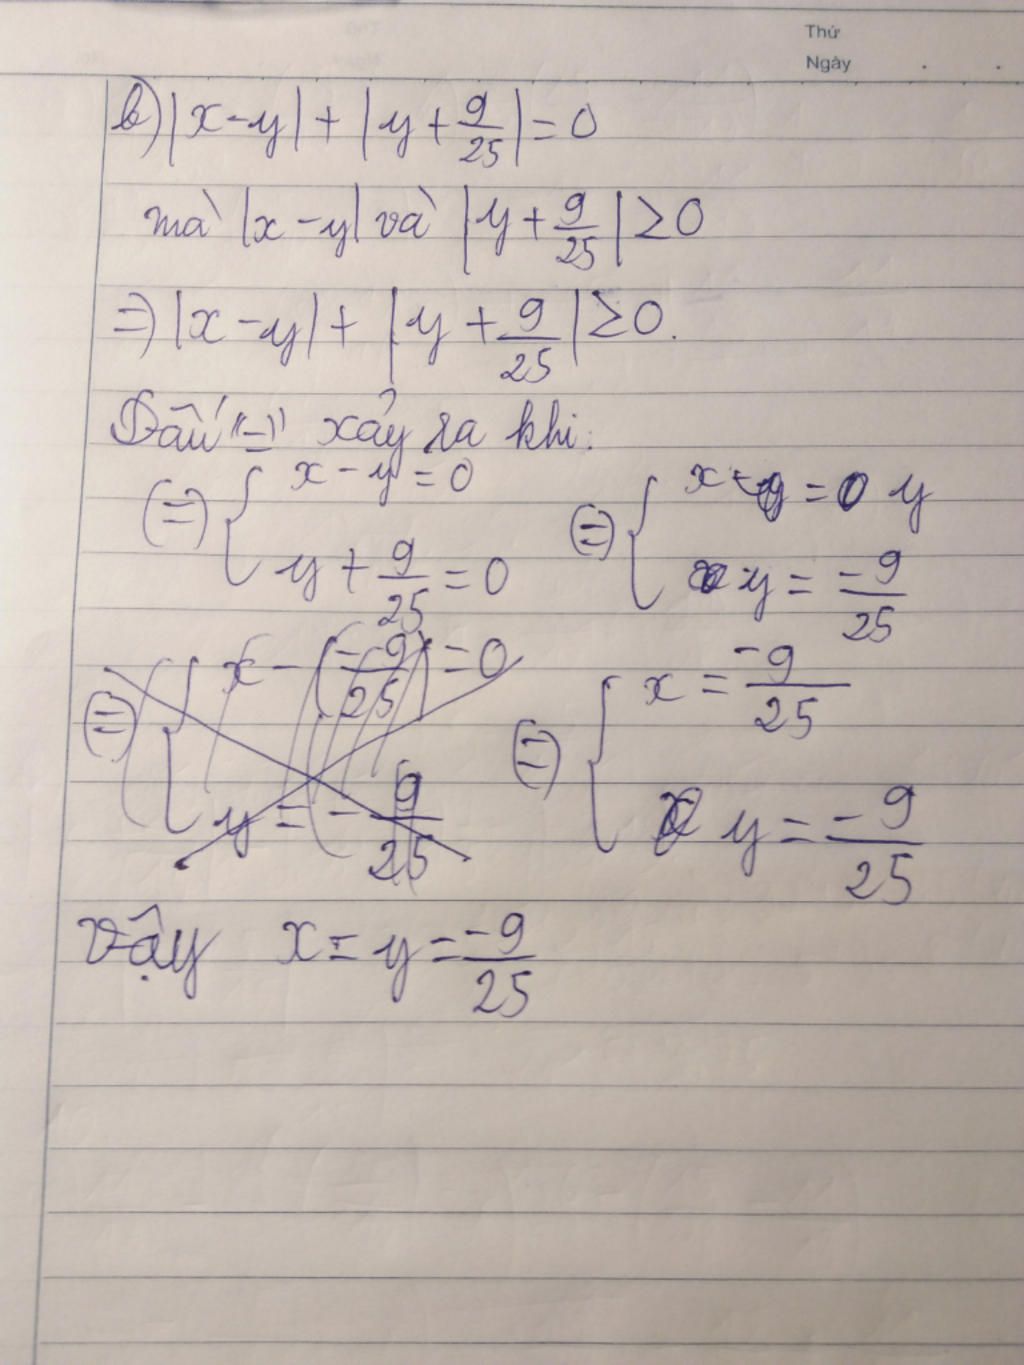 Thứ
Ngày
b) |x-y| + |y + 9/25| = 0
mà |x-y| và |y + 9/25| ≥ 0
=> |x-y| + |y + 9/25| ≥ 0.
Dấu "=" xảy ra khi:
(=) { x - y = 0
y + 9/25 = 0
(=) { x = y
y = -9/25
(=) { x - (-9/25) = 0
y = - 9/25
(=) { x = -9/25
y = -9/25
Vậy x = y = -9/25